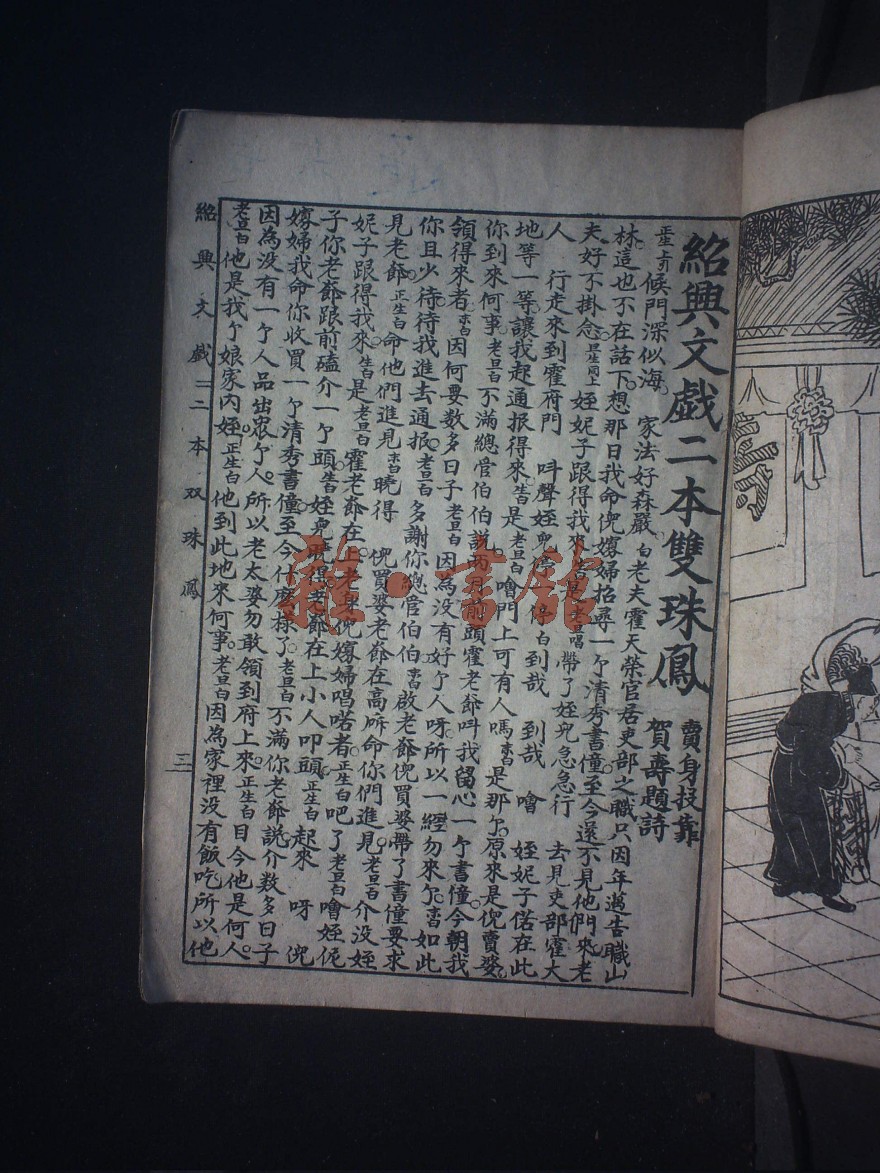 紹興文戲二本雙珠鳳
賣身投靠
賀壽題詩
正生上引 候門深似海 家法好森嚴 白 老夫霍天榮官居吏部之職只因年邁告職山
林這也不在話下想那日我命倪媒婦招尋一个清秀書僮至今還不見他們來老
夫好不掛念 姪妮子跟得我來 是 老旦唱 帶了姪兒急急行 去見吏部霍大
人 行走來到霍府門 叫聲姪兒 停 白 到哉 到哉 噲 姪妮子偌在此
地等一等讓我起通报得來 是 老旦白 噲門上可有人嗎 是那个原來是倪賣婆
你到來何事 老旦白 不滿總管伯伯說 前頭霍老爺呌我留心一个書僮今朝我
領得來者 因何要数多日子 老旦白 因為没有好个人呀所以一經勿來个 如此
你且少待待我進去通报 老旦白 多謝你總管伯伯 啟老爺倪買婆帶了書僮要求
見老爺 正生白 命他們進見 曉得 倪買婆老爺在高命你們進見 老旦白 介没姪
妮子跟得我來 是 老旦白 霍老爺在上老身倪媒婦唱喏者 正生白 吧了 老旦白 噲姪伲
子你老爺跟前磕介一个頭 姪兒 老爺在上小人叩頭 正生白 起來 呀 倪
媒婦我命你收買一个清秀書僮至今什麽樣了 老旦白 不滿你老爺說介数多日子
因為没有一个人品出衆个人所以老太婆勿敢領到府上來 正生白 目今他是何人
老旦白 他是我个娘家内姪 正生白 他到此地來何事 老旦白 因為家裡没有飯吃所以他
紹興文戲 二本双珠鳳
三
雜·書館